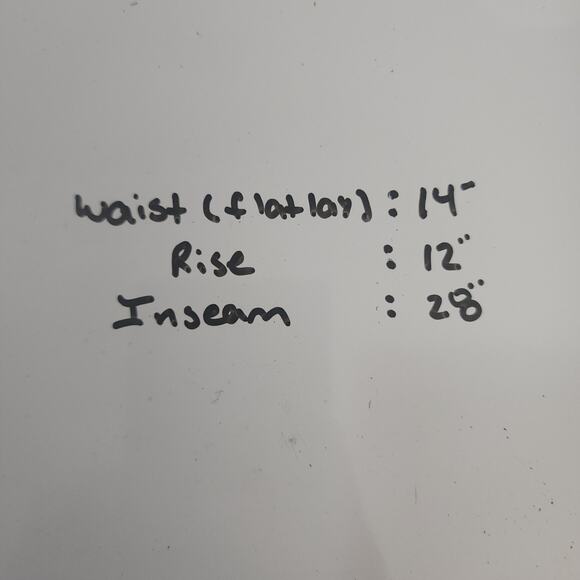 Waist (flatlay) : 14"
Rise : 12"
Inseam : 28"